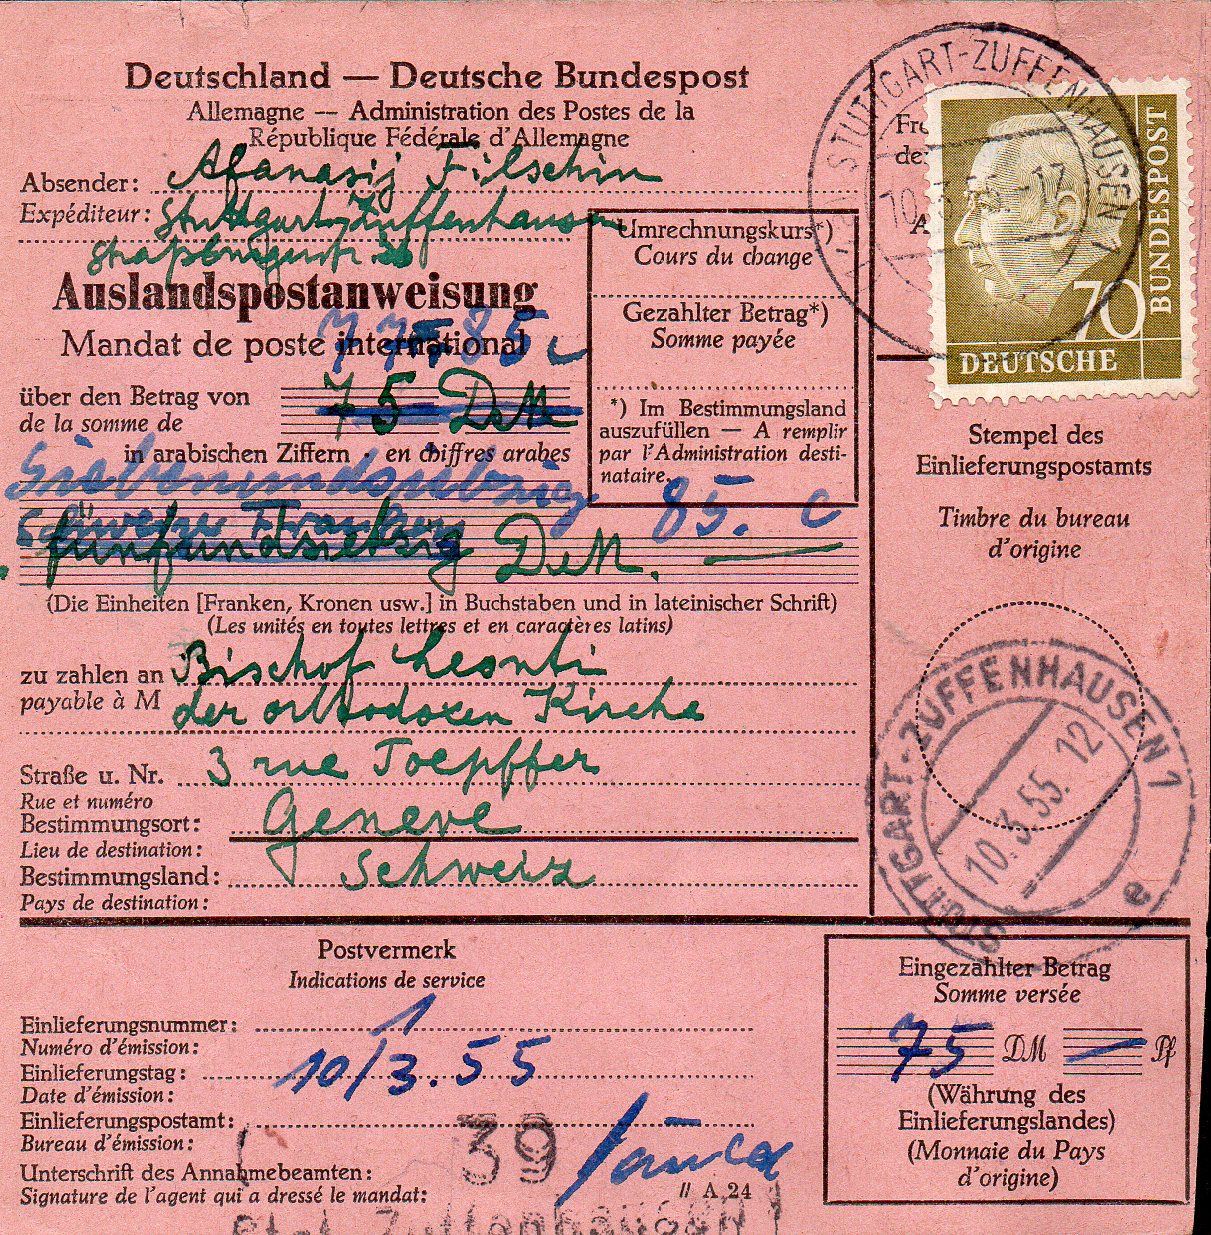 Deutschland — Deutsche Bundespost
Allemagne — Administration des Postes de la
République Fédérale d'Allemagne
Absender: Afanasij Filschin
Expéditeur: Stuttgart-Zuffenhausen
Auslandspostanweisung
Mandat de poste international
77 85 c
über den Betrag von
de la somme de
75 DM
in arabischen Ziffern · en chiffres arabes
Siebenundsiebzig 85. c
Schweizer Franken
fünfundsiebzig DM. —
(Die Einheiten [Franken, Kronen usw.] in Buchstaben und in lateinischer Schrift)
(Les unités en toutes lettres et en caractères latins)
zu zahlen an Bischof Leonti
payable à M der orthodoxen Kirche
Straße u. Nr. 3 rue Toepffer
Rue et numéro
Bestimmungsort: Geneve
Lieu de destination:
Bestimmungsland: Schweiz
Pays de destination:
Umrechnungskurs*)
Cours du change
Gezahlter Betrag*)
Somme payée
*) Im Bestimmungsland
auszufüllen — A remplir
par l'Administration desti-
nataire.
STUTTGART-ZUFFENHAUSEN 1
70
DEUTSCHE
BUNDESPOST
Stempel des
Einlieferungspostamts
Timbre du bureau
d'origine
STUTTGART-ZUFFENHAUSEN 1
10.3.55. 12
e
Postvermerk
Indications de service
Einlieferungsnummer: 1
Numéro d'émission:
Einlieferungstag: 10/3.55
Date d'émission:
Einlieferungspostamt:
Bureau d'émission:
39
Unterschrift des Annahmebeamten:
Signature de l'agent qui a dressé le mandat:
// A 24
Zuffenhausen
Eingezahlter Betrag
Somme versée
75 DM — Pf
(Währung des
Einlieferungslandes)
(Monnaie du Pays
d'origine)